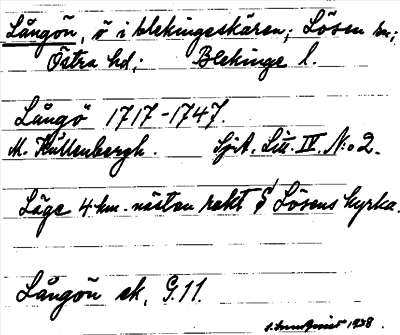 Långön, ö i blekingeskären; Lösen sn;
Östra hd; Blekinge l.
Långö 1717-1747.
M. Küllenbergh. Sjöt. Litt. IV. N:o 2.
Läge 4 km. nästan rakt S Lösens kyrka.
Långön ek. G.11.
S. Lundquist 1938.